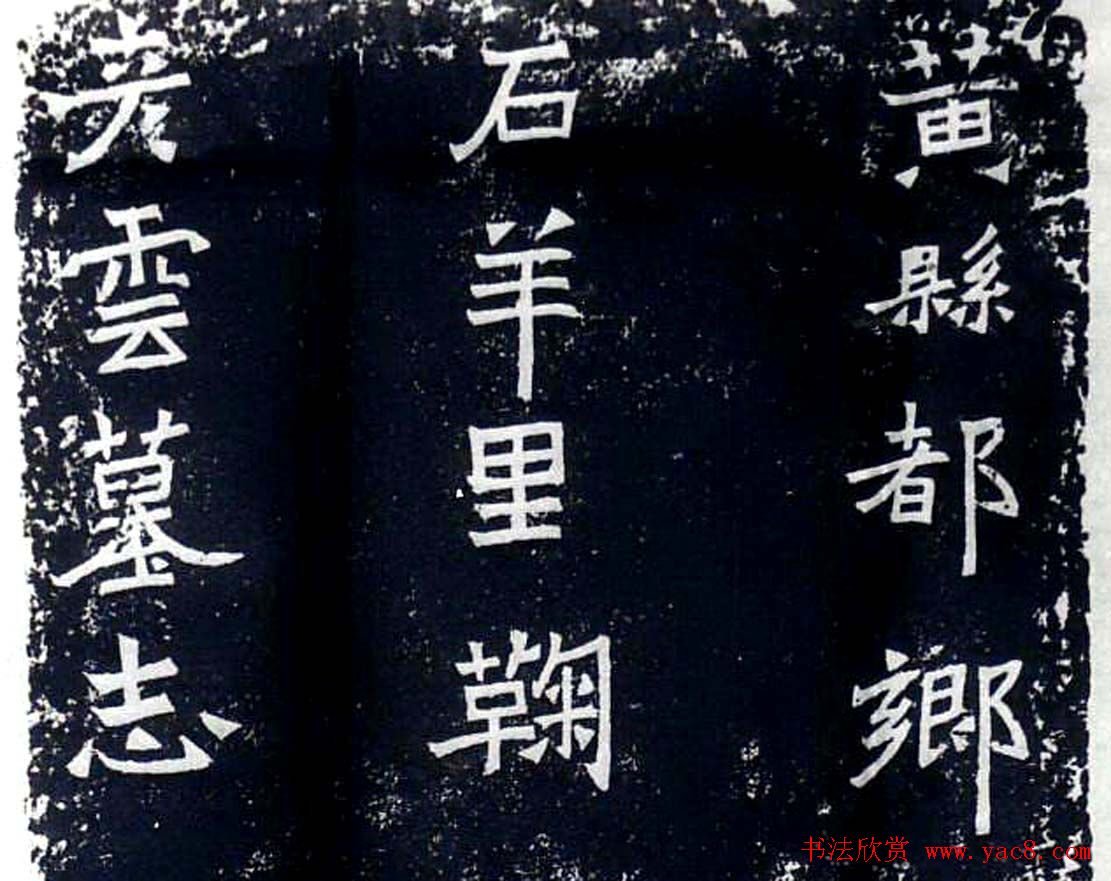 黄縣都鄉
石羊里鞠
彦雲墓志
书法欣赏 www.yac8.com